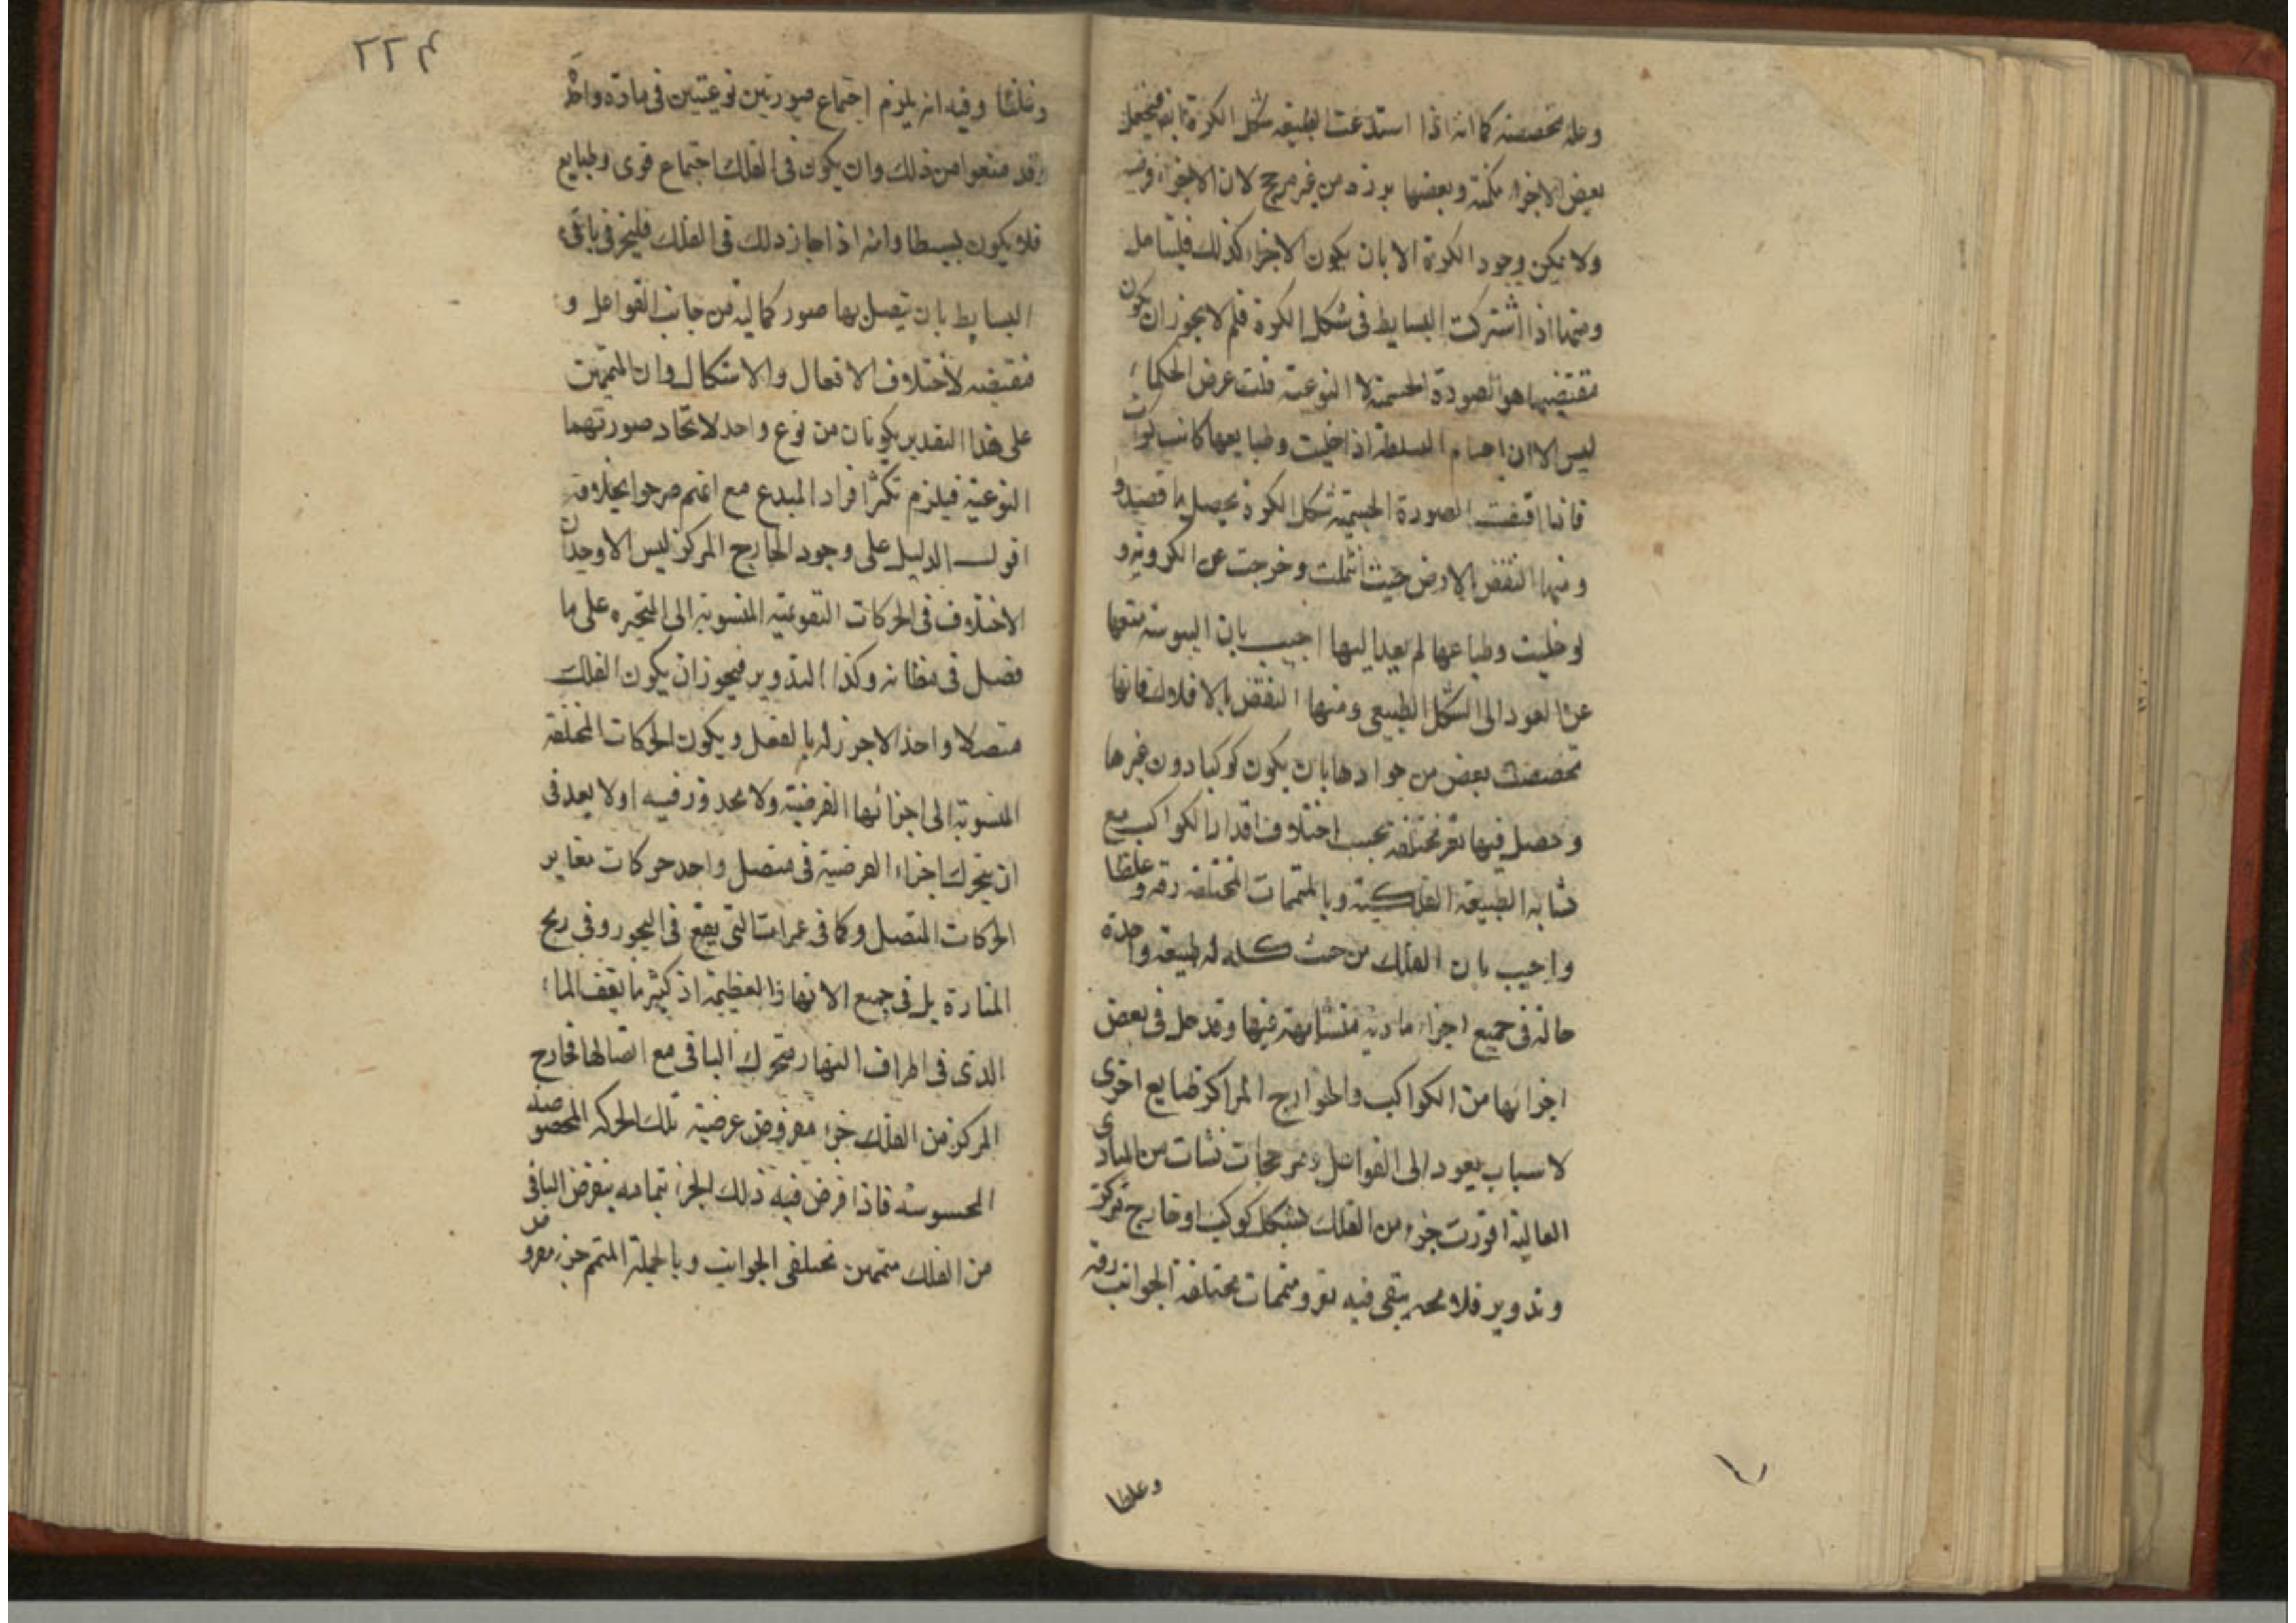 وعلة تخصصته كما انه اذا استدعت الطبيعة شكل الكرة
بعض الاجزاء مكمنة وبعضها بوزه من غير مرجح لان الاجزاء فرضية
ولا يمكن وجود الكرة الا بان يكون الاجزاء كذلك فليتامل
ومنها اذا اشتركت البسايط فى شكل الكرة فلم لا يجوز ان يكون
مقتضيها هو الصورة الجسمية لا النوعية قلت غرض الحكماء
ليس الا ان اجسام البسيطة اذا خليت وطبايعها كانت كرات
فاذا اقتضت الصورة الجسمية شكل الكرة يحصل ما قصدوا
ومنها النقض بالارض حيث انثلمت وخرجت عن الكروية و
لو خليت وطباعها لم يعد اليها اجيب بان اليبوسة منعها
عن العود الى الشكل الطبيعى ومنها النقض بالافلاك فانها
تخصصت بعض من جوادها بان يكون كوكبا دون غيرها
وحصل فيها نقر مختلفة بحسب اختلاف اقدار الكواكب مع
تشابه الطبيعة الفلكية وبالمتممات المختلفة رقة وغلظا
واجيب بان الفلك من حيث كله له طبيعة واحدة
حالة فى جميع اجزاء مادية متشابهة فيها وقد حل فى بعض
اجزائها من الكواكب والخوارج المراكز طبايع اخرى
لاسباب يعود الى القوابل ومرجحات نشات من المبادى
العالية افرزت جزء من الفلك بشكل كوكب او خارج مركز
وتدوير فلا محة يبقى فيه نقر ومتممات مختلفة الجوانب رقة
وغلظا
٢٢٤
وغلظا وفيه انه يلزم اجتماع صورتين نوعيتين فى مادة واحدة
وقد منعوا من ذلك وان يكون فى الفلك اجتماع قوى وطبايع
فلا يكون بسيطا وانه اذا جاز ذلك فى الفلك فليجز فى باقى
البسايط بان يتصل بها صور كمالية من جانب الفواعل و
مقتضيه لاختلاف الافعال والاشكال وان المتممين
على هذا التقدير يكونان من نوع واحد لاتحاد صورتهما
النوعية فيلزم تكثر افراد المبدع مع انهم صرحوا بخلافه
اقول الدليل على وجود الخارج المركز ليس الا وجدان
الاختلاف فى الحركات التقويمية المنسوبة الى المتحيره على ما
فصل فى مظانه وكذا التدوير فيجوز ان يكون الفلك
متصلا واحدا لاجزء له بالفعل ويكون الحركات المختلفة
المنسوبة الى اجزائها الفرضية ولا محذور فيه اولا يعد فى
ان يتحرك اجزاء الفرضية فى متصل واحد حركات تغاير
الحركات المتصل وكما فى غمرات التى يقع فى البحور وفى ريح
المنارة بل فى جميع الانهار العظيمة اذ كثيرما يقف الماء
الذى فى اطراف النهار يتحرك الباقى مع اتصالها فخارج
المركز من الفلك جزء مفروض عرضية تلك الحركه المخصوصة
المحسوسة فاذا فرض فيه ذلك الجزء بتمامه ينفرض الباقى
من الفلك متممين مختلفى الجوانب وبالجملة المتمم جزء مفروض